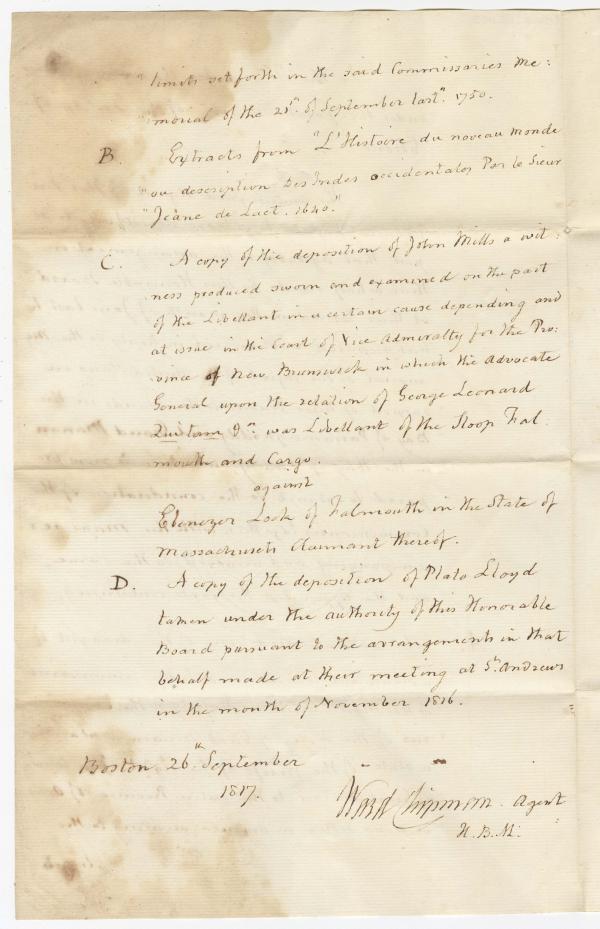 " limits set forth in the said Commissaries Me :
" morial of the 21st. of September last". 1750.
B. Extracts from "L'Histoire du noveau monde
"ou description Des Indes occidentales Par le Sieur
"Jeane de Laet. 1640."
C. A copy of the deposition of John Mills a wit :
ness produced sworn and examined on the part
of the Libellant in a certain cause depending and
at issue in the Court of Vice Admiralty for the Pro:
vince of New Brunswick in which the Advocate
General upon the relation of George Leonard
Qui tam &c. was Libellant of the Sloop Fal.
mouth and Cargo.
against
Ebenezer Lock of Falmouth in the State of
Massachusets Claimant thereof.
D. A copy of the deposition of Plato Lloyd
taken under the authority of this Honorable
Board pursuant to the arrangements in that
behalf made at their meeting at St. Andrews
in the month of November 1816.
Boston 26th September
1817.
Ward Chipman Agent
H. B. M: